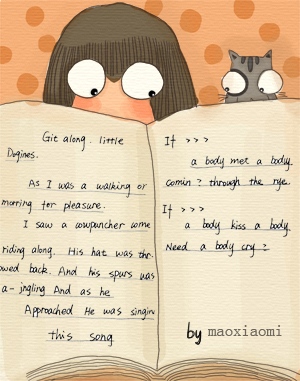 Git along. little
Dogines.
As I was a walking or
morring for pleasure.
I saw a cowpuncher come
riding along. His hat was thr-
owed back. And his spurs was
a-jngling And as he
Approached He was singin
this song
If >>>
a body met a body
comin? through the rye.
If >>>
a body kiss a body
Need a body cry?
by maoxiaomi